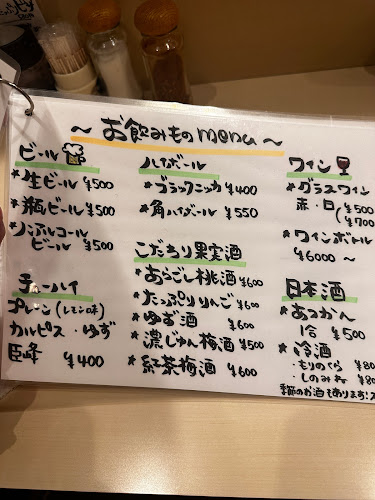 ～お飲みもの menu～
ビール
★生ビール ¥500
★瓶ビール ¥500
★ノンアルコール
ビール ¥500
チューハイ
プレーン(レモン味)
カルピス・ゆず
巨峰 ¥400
ハイボール
★ブラックニッカ ¥400
★角ハイボール ¥550
こだわり果実酒
★あらごし桃酒 ¥600
★たっぷりりんご ¥600
★ゆず酒 ¥600
★濃じゅん梅酒 ¥500
★紅茶梅酒 ¥600
ワイン
★グラスワイン
赤・白 (¥500
¥700
★ワインボトル
¥6000～
日本酒
★あつかん
1合 ¥500
★冷酒
・もりのくら
・しのみね
季節のお酒もあります!